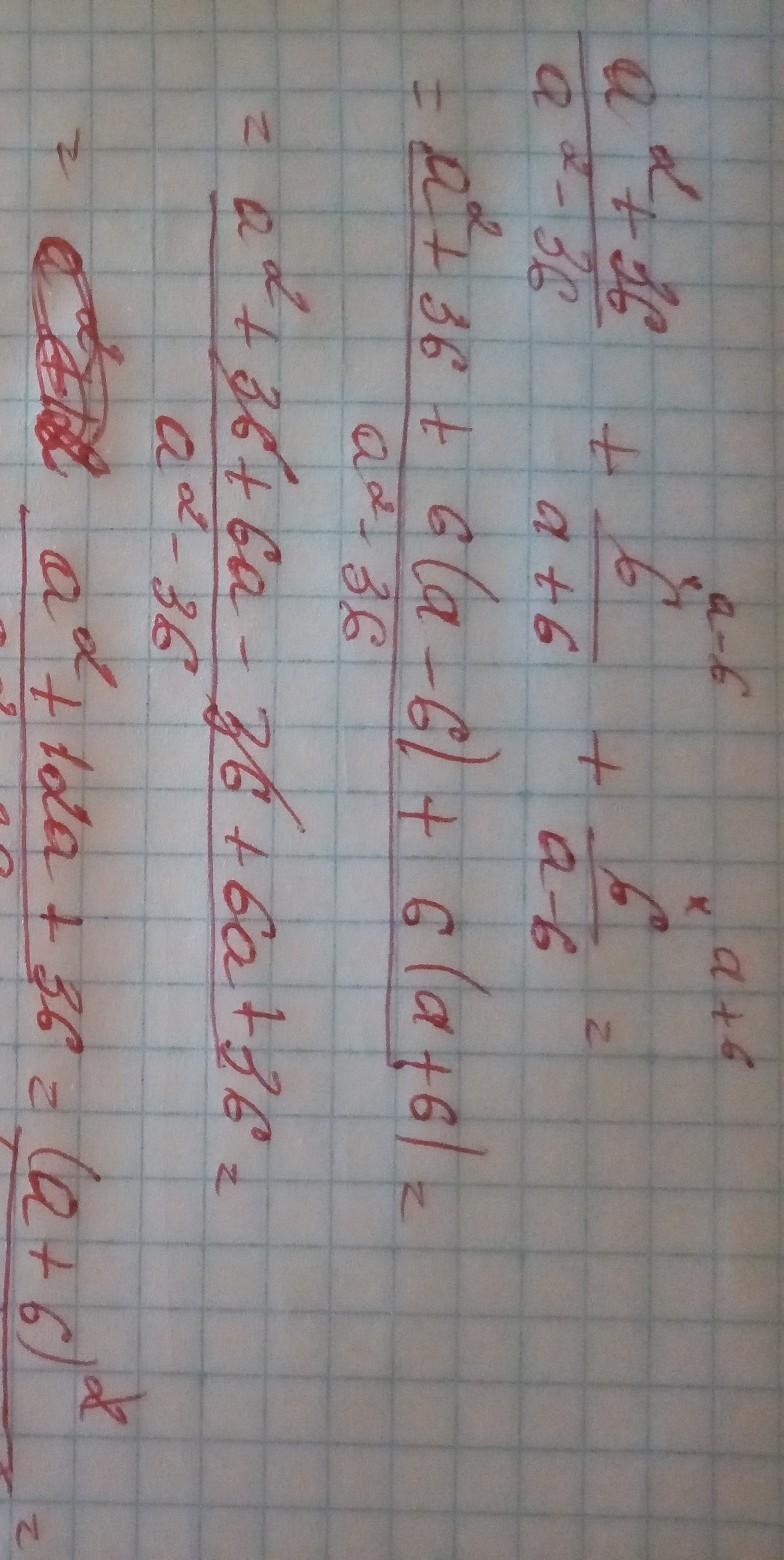 a-6 a+6
a² + 36 + 6× + 6× =
a² - 36 a+6 a-6
= a² + 36 + 6(a - 6) + 6(a + 6) =
a² - 36
= a² + 36 + 6a - 36 + 6a + 36 =
a² - 36
= a² + 12a + 36 = (a + 6)² =